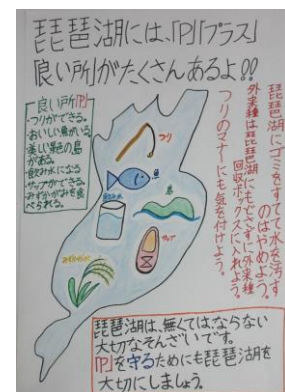 琵琶湖には、「P」「プラス」
「良い所」がたくさんあるよ!!
良い所「P」
・つりができる。
・おいしい魚がいる。
・美しい景色の島
がある。
・飲み水になる
・サップができる。
・みずかがみを食
べられる。
つり
魚
島
飲み水
サップ
みずかがみ
琵琶湖にゴミをすてて水を汚す
のはやめよう。
外来種は琵琶湖にもどさずに外来種
回収ボックスに入れよう。
つりのマナーにも気を付けよう。
琵琶湖は、無くてはならない
大切なそんざいです。
「P」を守るためにも琵琶湖を
大切にしましょう。